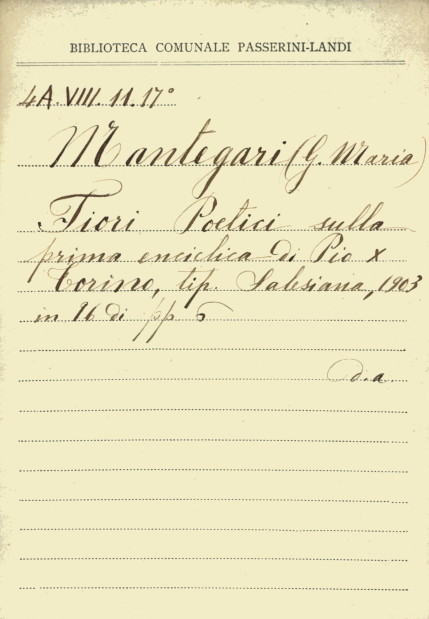 BIBLIOTECA COMUNALE PASSERINI-LANDI
4A. VIII. 11. 17°
Mantegari (G. Maria)
Fiori Poetici sulla
prima enciclica di Pio X
Torino, tip. Salesiana, 1903
in 16 di pp 6
d. a.